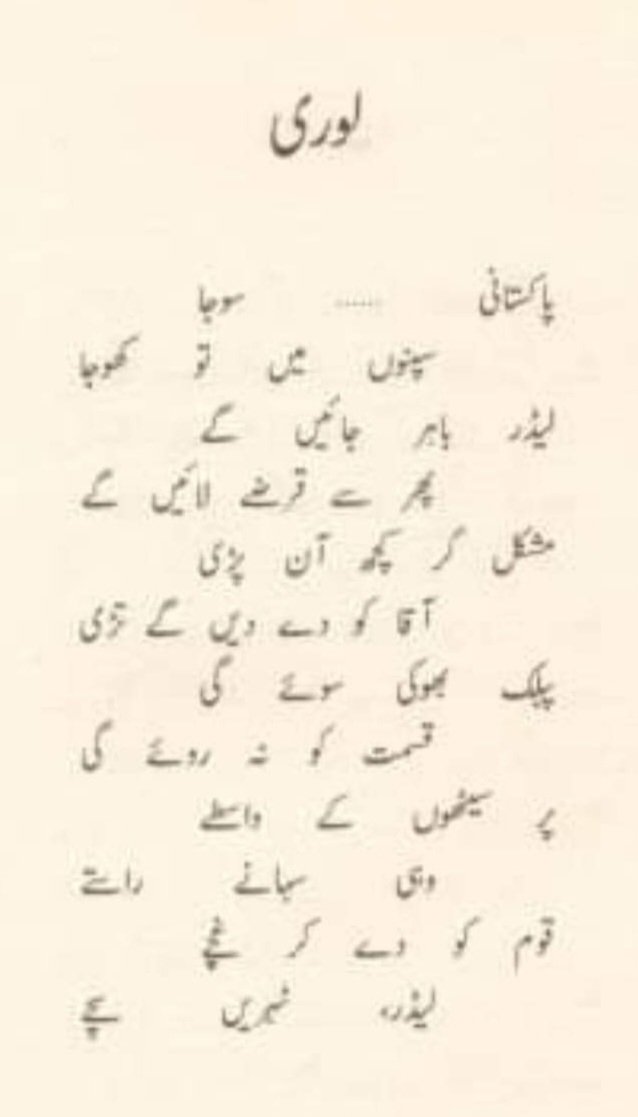 لوری
پاکستانی ...... سوجا
سپنوں میں تو کھوجا
لیڈر باہر جائیں گے
پھر سے قرضے لائیں گے
مشکل گر کچھ آن پڑی
آقا کو دے دیں گے تڑی
پبلک بھوکی سوئے گی
قسمت کو نہ روئے گی
پر سیٹھوں کے واسطے
وہی سہانے راستے
قوم کو دے کر غچے
لیڈر، ٹھہریں سچے